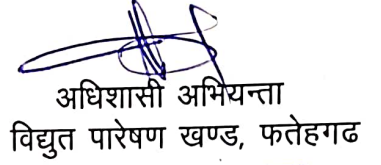 अधिशासी अभियन्ता
विद्युत पारेषण खण्ड, फतेहगढ